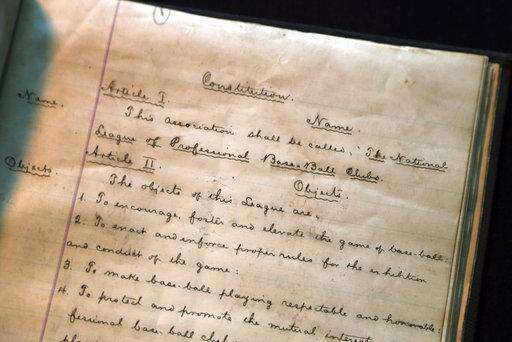 Constitution.
Article I.
Name. Name.
This association shall be called, "The National
League of Professional Base Ball Clubs.
Article II.
Objects. Objects.
The objects of this League are,
1. To encourage, foster and elevate the game of base-ball.
2. To enact and enforce proper rules for the exhibition
and conduct of the game:
3. To make base-ball playing respectable and honorable:
4. To protect and promote the mutual interest
fessional base ball